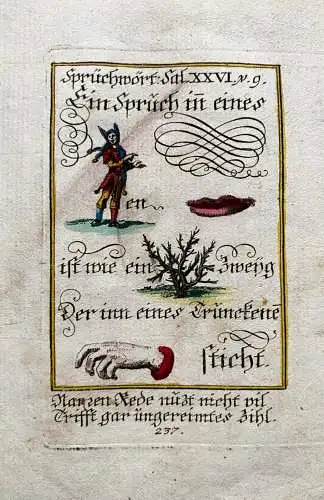 Sprüchwört: Sal. XXVI. v. 9.
Ein Sprüch in̄ eines
en
ist wie ein Zweÿg
Der inn eines Trünckenē
sticht.
Narren Rede nüzt nicht vil
Trifft gar üngereimtes Zihl.
237.